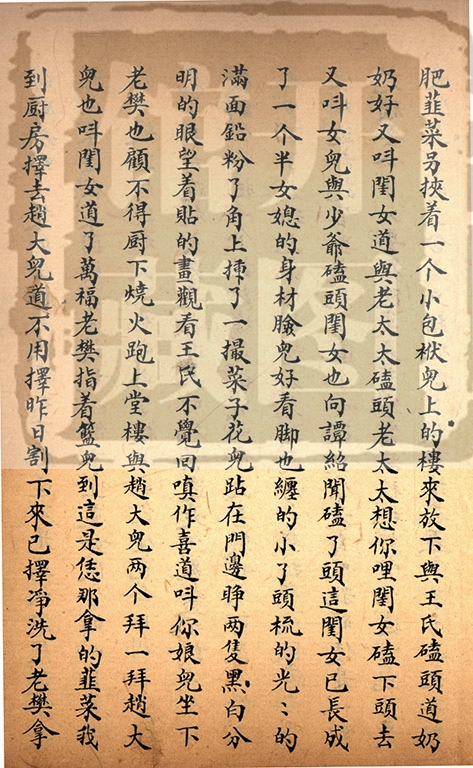 肥韮菜另挾着一个小包袱兒上的樓來放下與王氏磕頭道奶
奶好又呌閨女道與老太太磕頭老太太想你哩閨女磕下頭去
又呌女兒與少爺磕頭閨女也向譚紹聞磕了頭這閨女已長成
了一个半女媳的身材臉兒好看脚也纏的小了頭梳的光〻的
滿面鉛粉了角上揷了一撮菜子花兒跕在門邊睜两隻黑白分
明的眼望着貼的畫觀看王氏不覺回嗔作喜道呌你娘兒坐下
老樊也顧不得厨下燒火跑上堂樓與趙大兒两个拜一拜趙大
兒也呌閨女道了萬福老樊指着籃兒到這是恁那拿的韮菜我
到厨房擇去趙大兒道不用擇昨日割下來已擇凈洗了老樊拿